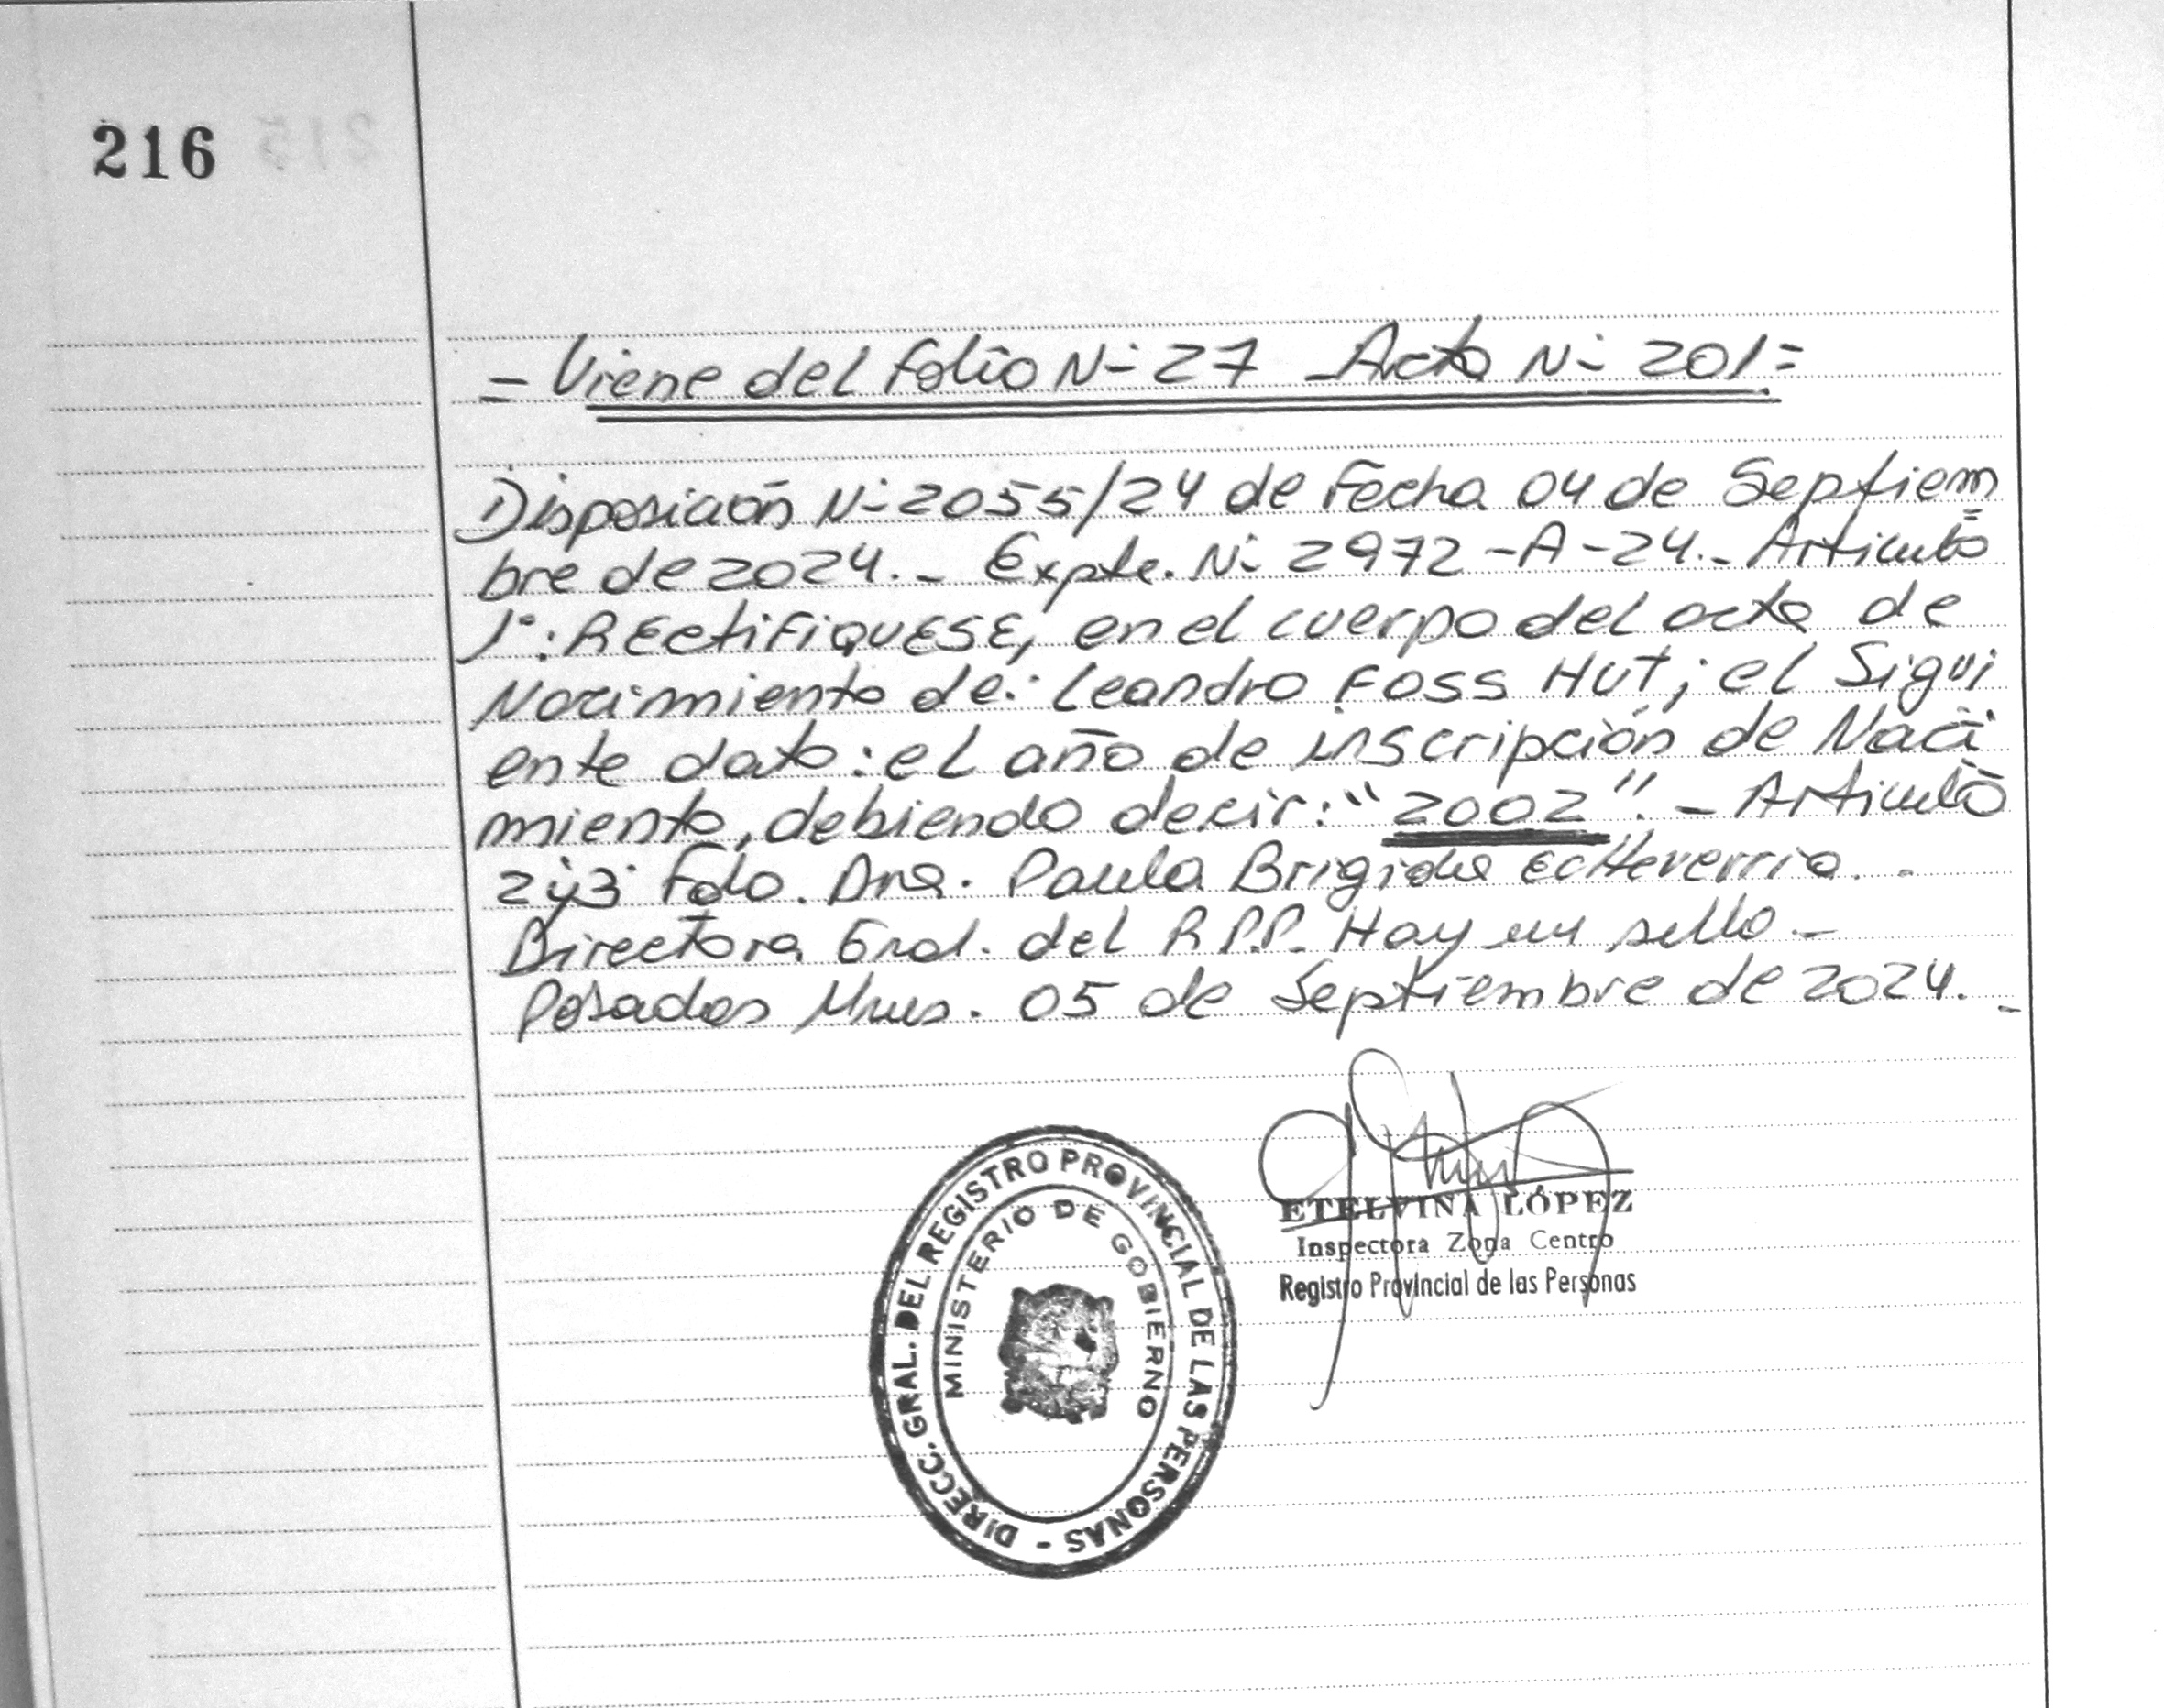 216
= Viene del folio N- 27 - Acta N- 201 =
Disposición N- 2055/24 de Fecha 04 de Septiem
bre de 2024.- Expte. N- 2972-A-24.- Articulo
1°: REctiFiQUESE, en el cuerpo del acta de
Nacimiento de: Leandro FOSS HUT; el Sigui
ente dato: el año de inscripción de Naci
miento, debiendo decir: "2002".- Articulo
2y3 Fdo. Dra. Paula Brigida EcHeverria.-
Directora Gral. del R.P.P. Hay un sello.-
Posadas Mnes. 05 de Septiembre de 2024.-
ETELVINA LÓPEZ
Inspectora Zona Centro
Registro Provincial de las Personas
DIRECC. GRAL. DEL REGISTRO PROVINCIAL DE LAS PERSONAS -
MINISTERIO DE GOBIERNO